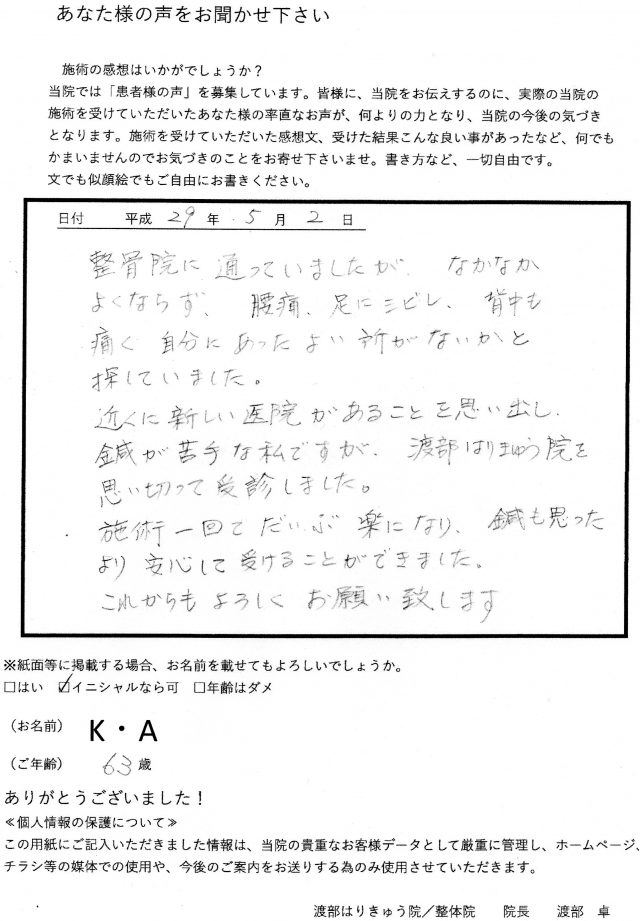 あなた様の声をお聞かせ下さい
施術の感想はいかがでしょうか？
当院では「患者様の声」を募集しています。皆様に、当院をお伝えするのに、実際の当院の
施術を受けていただいたあなた様の率直なお声が、何よりの力となり、当院の今後の気づき
となります。施術を受けていただいた感想文、受けた結果こんな良い事があったなど、何でも
かまいませんのでお気づきのことをお寄せ下さいませ。書き方など、一切自由です。
文でも似顔絵でもご自由にお書きください。
日付 平成 29 年 5 月 2 日
整骨院に 通っていましたが、なかなか
よくならず、腰痛、足にシビレ、背中も
痛く 自分にあった よい 所がないかと
探していました。
近くに新しい医院があることを思い出し、
鍼が苦手な私ですが、渡部はりきゅう院を
思い切って受診しました。
施術一回で だいぶ 楽になり、鍼も思った
より 安心して受けることができました。
これからも よろしく お願い致します
※紙面等に掲載する場合、お名前を載せてもよろしいでしょうか。
□はい ☑イニシャルなら可 □年齢はダメ
（お名前） K・A
（ご年齢） 63 歳
ありがとうございました！
≪個人情報の保護について≫
この用紙にご記入いただきました情報は、当院の貴重なお客様データとして厳重に管理し、ホームページ、
チラシ等の媒体での使用や、今後のご案内をお送りする為のみ使用させていただきます。
渡部はりきゅう院／整体院 院長 渡部 卓